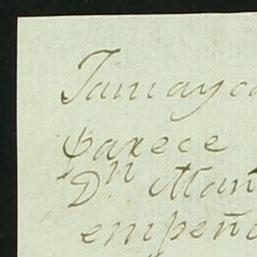 Tamayo
parece
Dn Man
empeñ